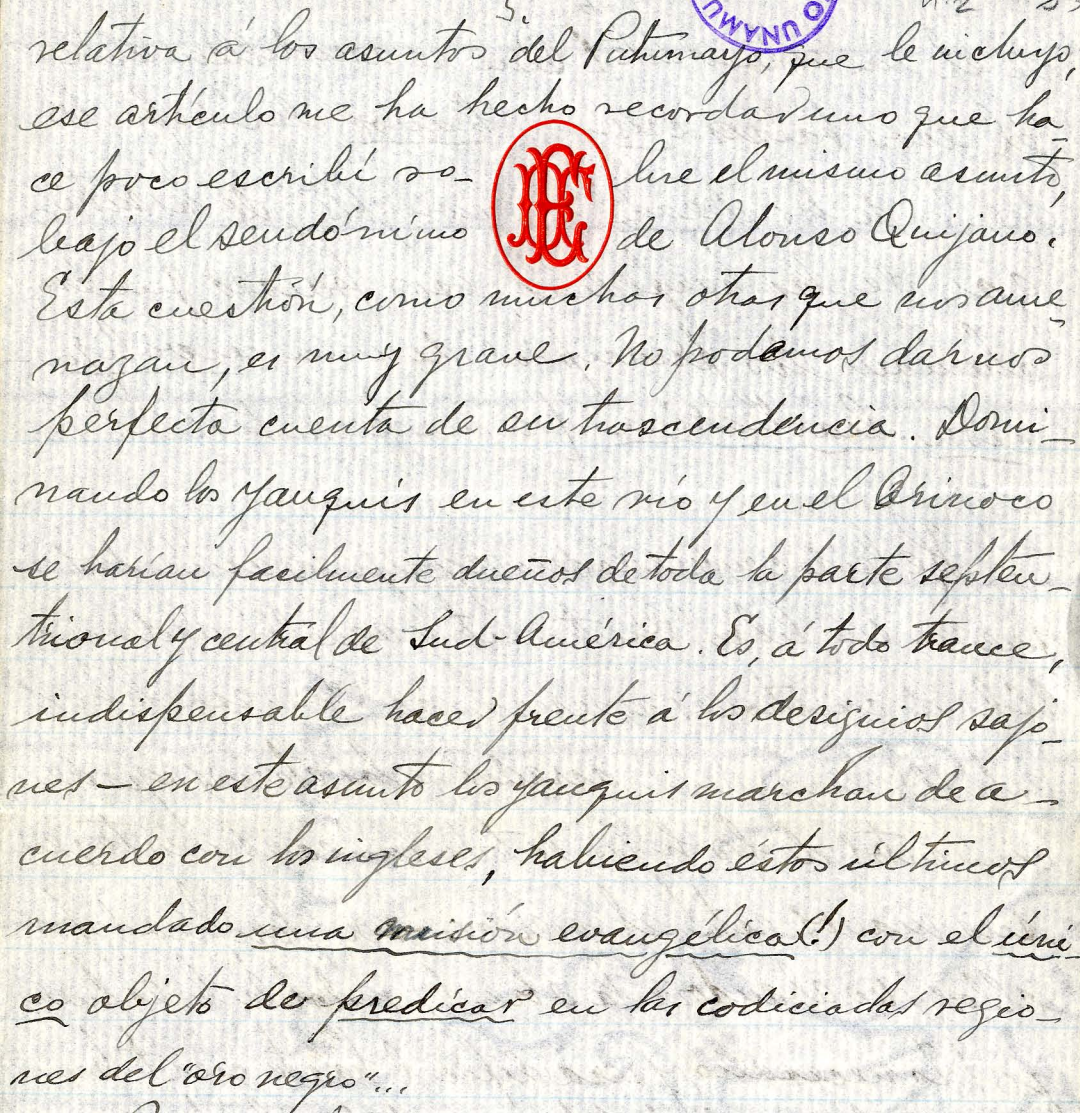 5.
UNAMU
relativa á los asuntos del Putumayo, que le incluyo,
ese artículo me ha hecho recordar uno que ha-
ce poco escribí so- bre el mismo asunto,
bajo el seudónimo de Alonso Quijano.
Esta cuestión, como muchas otras que nos ame-
nazan, es muy grave. No podemos darnos
perfecta cuenta de su trascendencia. Domi-
nando los yanquis en este río y en el Orinoco
se harían facilmente dueños de toda la parte septen-
trional y central de Sud-América. Es, á todo trance,
indispensable hacer frente á los designios sajo-
nes — en este asunto los yanquis marchan de a-
cuerdo con los ingleses, habiendo éstos últimos
mandado una misión evangélica (!) con el úni-
co objeto de predicar en las codiciadas regio-
nes del "oro negro"...